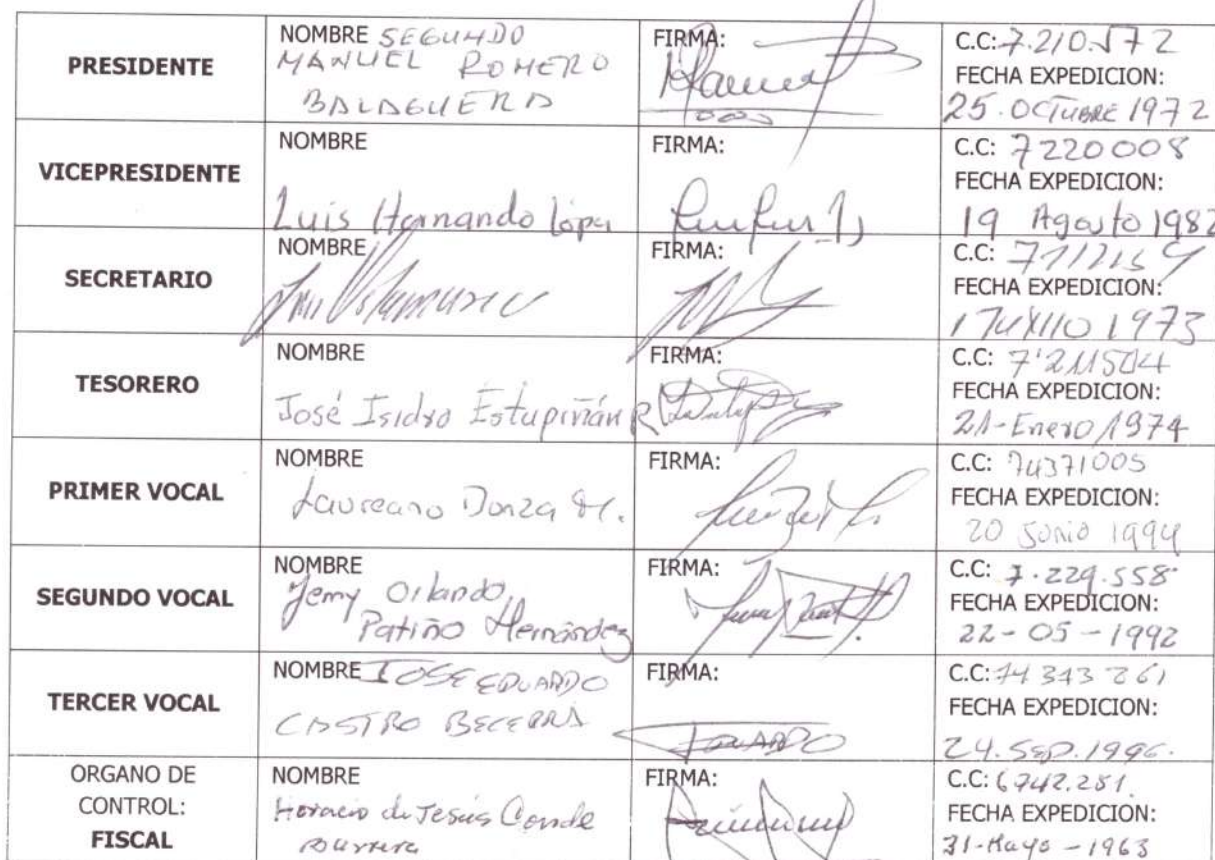 PRESIDENTE
NOMBRE SEGUNDO
MANUEL ROMERO
BALAGUERA
FIRMA:
C.C: 7.210.572
FECHA EXPEDICION:
25.OCTUBRE 1972
VICEPRESIDENTE
NOMBRE
Luis Hernando López
FIRMA:
C.C: 7220008
FECHA EXPEDICION:
19 Agosto 1982
SECRETARIO
NOMBRE
FIRMA:
C.C:
FECHA EXPEDICION:
1973
TESORERO
NOMBRE
José Isidro Estupiñán R
FIRMA:
C.C: 7'211504
FECHA EXPEDICION:
21-Enero 1974
PRIMER VOCAL
NOMBRE
Laureano Donza
FIRMA:
C.C: 74371005
FECHA EXPEDICION:
20 Junio 1994
SEGUNDO VOCAL
NOMBRE
Yemy Orlando
Patiño Hernández
FIRMA:
C.C: 7.229.558
FECHA EXPEDICION:
22-05-1992
TERCER VOCAL
NOMBRE JOSE EDUARDO
CASTRO BECERRA
FIRMA:
EDUARDO
C.C: 74 373 261
FECHA EXPEDICION:
24.SEP.1996.
ORGANO DE
CONTROL:
FISCAL
NOMBRE
Horacio de Jesús Conde
FIRMA:
C.C: 6742.281.
FECHA EXPEDICION:
31-Mayo-1963